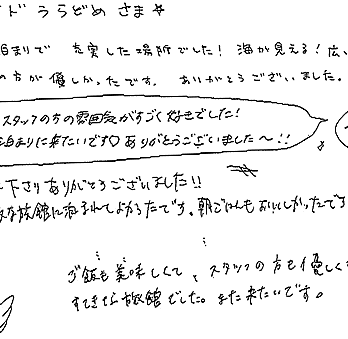 ドうらどめ さま
泊まりで 充実した場所でした! 海が見える! 広い
の方が優しかったです。 ありがとうございました。
スタッフの方の雰囲気がすごく好きでした!
泊まりに来たいです♡ ありがとうございました〜!!
下さりありがとうございました!!
な旅館に泊まれてよかったです。朝ごはんもおいしかったです
ご飯も美味しくて、スタッフの方も優しく
すてきな旅館でした。また来たいです。